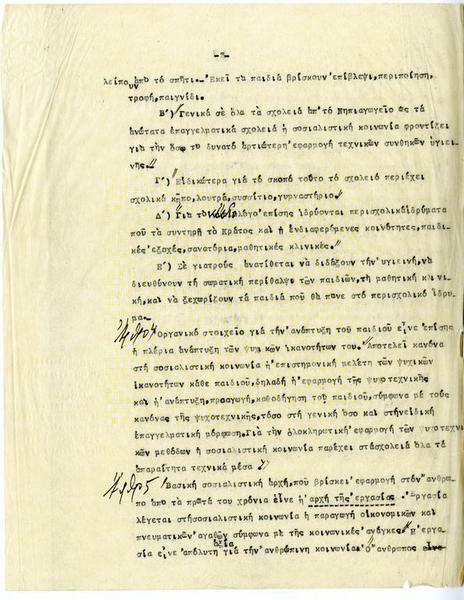 -3-
λείπουν ἀπό τό σπῆτι.- Ἐκεῖ τά παιδιά βρίσκουν ἐπίβλεψι,περιποίηση,
τροφή,παιγνίδι.
Β') Γενικά σέ ὅλα τά σχολειά ἀπ'τό Νηπιαγωγεῖο ὡς τά
ἀνώτατα ἐπαγγελματικά σχολειά ἡ σοσιαλιστική κοινωνία φροντίζει
γιά τήν ὅσο τό δυνατό ἀρτιώτερη ἐφαρμογή τεχνικῶν συνθηκῶν ὑγιει-
νῆς.
Γ') Εἰδικώτερα γιά τό σκοπό τοῦτο τό σχολεῖο περιέχει
σχολικό κῆπο,λουτρά,συσσίτιο,γυμναστήριο.
Δ') Γιά τό λόγο ἐπίσης ἱδρύονται περισχολικά ἱδρύματα
πού τά συντηρῆ τό Κράτος καί ἡ ἐνδιαφερόμενες κοινότητες,παιδι-
κές ἐξοχές,σανατόρια,μαθητικές κλινικές.
Ε') Σέ γιατρούς ἀνατίθεται νά διδάξουν τήν ὑγιεινή,νά
διευθύνουν τή σωματική περίθαλψη τῶν παιδιῶν,τή μαθητική κλινι-
κή,καί νά ξεχωρίζουν τά παιδιά πού θά πᾶνε στό περισχολικό ἵδρυ-
μα.
Ἄρθρο 4 Ὀργανικό στοιχεῖο γιά τήν ἀνάπτυξη τοῦ παιδιοῦ εἶνε ἐπίσης
ἡ πλέρια ἀνάπτυξη τῶν ψυχικῶν ἱκανοτήτων του. Ἀποτελεῖ κανόνα
στή σοσιαλιστική κοινωνία ἡ ἐπιστημονική μελέτη τῶν ψυχικῶν
ἱκανοτήτων κάθε παιδιοῦ,δηλαδή ἡ ἐφαρμογή τῆς ψυχοτεχνικῆς
καί ἡ ἀνάπτυξη,προαγωγή,καθοδήγηση τοῦ παιδιοῦ,σύμφωνα μέ τούς
κανόνας τῆς ψυχοτεχνικῆς,τόσο στή γενική ὅσο καί στήν εἰδική
ἐπαγγελματική μόρφωση.Γιά τήν ὁλοκληρωτική ἐφαρμογή τῶν ψυχοτεχνι-
κῶν μεθόδων ἡ σοσιαλιστική κοινωνία παρέχει στά σχολειά ὅλα τά
ἀπαραίτητα τεχνικά μέσα
Ἄρθρο 5 Βασική σοσιαλιστική ἀρχή,πού βρίσκει ἐφαρμογή στόν ἄνθρω-
πο ἀπό τά πρῶτα του χρόνια εἶνε ἡ ἀρχή τῆς ἐργασίας. Ἐργασία
λέγεται στή σοσιαλιστική κοινωνία ἡ παραγωγή οἰκονομικῶν καί
πνευματικῶν ἀγαθῶν σύμφωνα μέ τῆς κοινωνικές ἀνάγκες. Ἡ ἐργα-
σία εἶνε ἀξία ἀπόλυτη γιά τήν ἀνθρώπινη κοινωνία. Ὁ ἄνθρωπος εἶνε